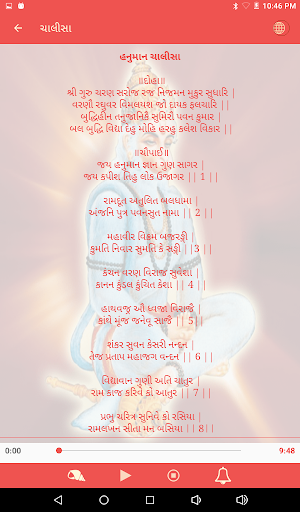 10:46 PM
ચાલીસા
હનુમાન ચાલીસા
॥દોહા॥
શ્રી ગુરુ ચરણ સરોજ રજ નિજમન મુકુર સુધારિ |
વરણી રઘુવર વિમલયશ જો દાયક ફલચારિ ||
બુદ્ધિહીન તનુજાનિકૈ સુમિરૌ પવન કુમાર |
બલ બુદ્ધિ વિદ્યા દેહુ મોહિ હરહુ કલેશ વિકાર ||
॥ચૌપાઈ॥
જય હનુમાન જ્ઞાન ગુણ સાગર |
જય કપીશ તિહુ લોક ઉજાગર || 1 ||
રામદૂત અતુલિત બલધામા |
અંજનિ પુત્ર પવનસુત નામા || 2 ||
મહાવીર વિક્રમ બજરઙ્ગી |
કુમતિ નિવાર સુમતિ કે સઙ્ગી ||3 ||
કંચન વરણ વિરાજ સુવેશા |
કાનન કુંડલ કુંચિત કેશા || 4 ||
હાથવજ્ર ઔ ધ્વજા વિરાજૈ |
કાંથે મૂંજ જનેવૂ સાજૈ || 5||
શંકર સુવન કેસરી નન્દન |
તેજ પ્રતાપ મહાજગ વન્દન || 6 ||
વિદ્યાવાન ગુણી અતિ ચાતુર |
રામ કાજ કરિવે કો આતુર || 7 ||
પ્રભુ ચરિત્ર સુનિવે કો રસિયા |
રામલખન સીતા મન બસિયા || 8||
0:00
9:48